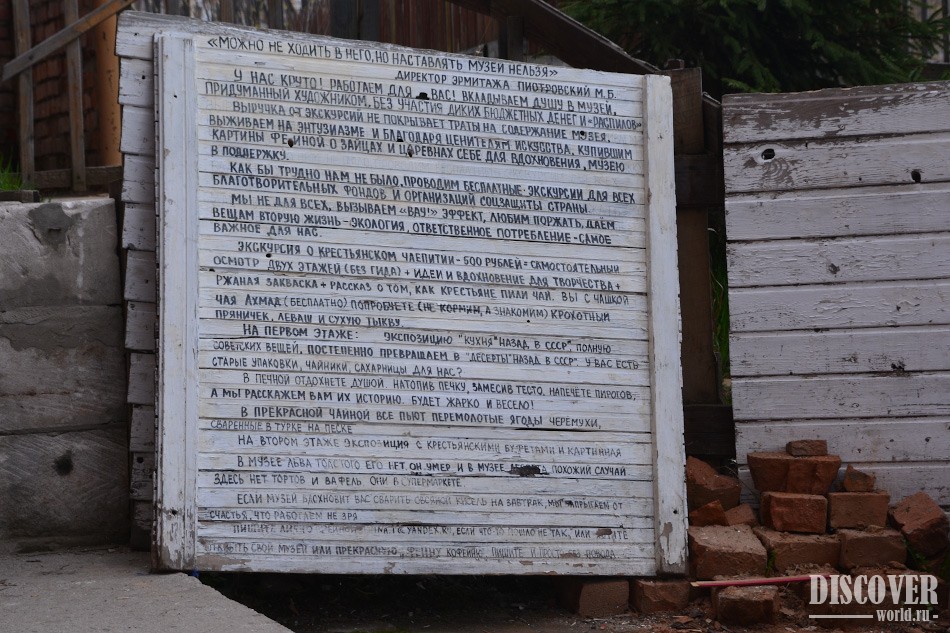 «МОЖНО НЕ ХОДИТЬ В НЕГО, НО НАСТАВЛЯТЬ МУЗЕЙ НЕЛЬЗЯ»
ДИРЕКТОР ЭРМИТАЖА ПИОТРОВСКИЙ М.Б.
У НАС КРУТО! РАБОТАЕМ ДЛЯ ВАС! ВКЛАДЫВАЕМ ДУШУ В МУЗЕЙ,
ПРИДУМАННЫЙ ХУДОЖНИКОМ, БЕЗ УЧАСТИЯ ДИКИХ БЮДЖЕТНЫХ ДЕНЕГ И «РАСПИЛОВ»
ВЫРУЧКА ОТ ЭКСКУРСИЙ НЕ ПОКРЫВАЕТ ТРАТЫ НА СОДЕРЖАНИЕ МУЗЕЯ.
ВЫЖИВАЕМ НА ЭНТУЗИАЗМЕ И БЛАГОДАРЯ ЦЕНИТЕЛЯМ ИСКУССТВА, КУПИВШИМ
КАРТИНЫ О ЗАЙЦАХ И ЦАРЕВНАХ СЕБЕ ДЛЯ ВДОХНОВЕНИЯ, МУЗЕЮ
В ПОДДЕРЖКУ.
КАК БЫ ТРУДНО НАМ НЕ БЫЛО, ПРОВОДИМ БЕСПЛАТНЫЕ ЭКСКУРСИИ ДЛЯ ВСЕХ
БЛАГОТВОРИТЕЛЬНЫХ ФОНДОВ И ОРГАНИЗАЦИЙ СОЦЗАЩИТЫ СТРАНЫ.
МЫ НЕ ДЛЯ ВСЕХ, ВЫЗЫВАЕМ «ВАУ!» ЭФФЕКТ, ЛЮБИМ ПОРЖАТЬ, ДАЁМ
ВЕЩАМ ВТОРУЮ ЖИЗНЬ - ЭКОЛОГИЯ, ОТВЕТСТВЕННОЕ ПОТРЕБЛЕНИЕ - САМОЕ
ВАЖНОЕ ДЛЯ НАС.
ЭКСКУРСИЯ О КРЕСТЬЯНСКОМ ЧАЕПИТИИ - 500 РУБЛЕЙ = САМОСТОЯТЕЛЬНЫЙ
ОСМОТР ДВУХ ЭТАЖЕЙ (БЕЗ ГИДА) + ИДЕИ И ВДОХНОВЕНИЕ ДЛЯ ТВОРЧЕСТВА +
РЖАНАЯ ЗАКВАСКА + РАССКАЗ О ТОМ, КАК КРЕСТЬЯНЕ ПИЛИ ЧАЙ. ВЫ С ЧАШКОЙ
ЧАЯ АХМАД (БЕСПЛАТНО) ПОПРОБУЕТЕ (НЕ КОРМИМ, А ЗНАКОМИМ) КРОХОТНЫЙ
ПРЯНИЧЕК, ЛЕВАШ И СУХУЮ ТЫКВУ.
НА ПЕРВОМ ЭТАЖЕ: ЭКСПОЗИЦИЮ "КУХНЯ" НАЗАД В СССР", ПОЛНУЮ
СОВЕТСКИХ ВЕЩЕЙ, ПОСТЕПЕННО ПРЕВРАЩАЕМ В "ДЕСЕРТЫ" НАЗАД В СССР". У ВАС ЕСТЬ
СТАРЫЕ УПАКОВКИ, ЧАЙНИКИ, САХАРНИЦЫ ДЛЯ НАС?
В ПЕЧНОЙ ОТДОХНЕТЕ ДУШОЙ. НАТОПИВ ПЕЧКУ, ЗАМЕСИВ ТЕСТО, НАПЕЧЕТЕ ПИРОГОВ,
А МЫ РАССКАЖЕМ ВАМ ИХ ИСТОРИЮ. БУДЕТ ЖАРКО И ВЕСЕЛО!
В ПРЕКРАСНОЙ ЧАЙНОЙ ВСЕ ПЬЮТ ПЕРЕМОЛОТЫЕ ЯГОДЫ ЧЕРЕМУХИ,
СВАРЕННЫЕ В ТУРКЕ НА ПЕСКЕ
НА ВТОРОМ ЭТАЖЕ ЭКСПОЗИЦИЯ С КРЕСТЬЯНСКИМИ БУФЕТАМИ И КАРТИННАЯ
В МУЗЕЕ ЛЬВА ТОЛСТОГО ЕГО НЕТ ОН УМЕР, И В МУЗЕЕ ПОХОЖИЙ СЛУЧАЙ
ЗДЕСЬ НЕТ ТОРТОВ И ВАФЕЛЬ. ОНИ В СУПЕРМАРКЕТЕ.
ЕСЛИ МУЗЕЙ ВДОХНОВИТ ВАС СВАРИТЬ ОВСЯНОЙ КИСЕЛЬ НА ЗАВТРАК, МЫ ЗАПРЫГАЕМ ОТ
СЧАСТЬЯ, ЧТО РАБОТАЕМ НЕ ЗРЯ
ПИШИТЕ ЛИЧНО YANDEX.RU, ЕСЛИ ЧТО-ТО ПОШЛО НЕ ТАК, ИЛИ
ОТКРЫТЬ СВОЙ МУЗЕЙ ИЛИ ПРЕКРАСНУЮ КОФЕЙНЮ. ПИШИТЕ И ПРОСТО БЕЗ ПОВОДА
DISCOVER
world.ru